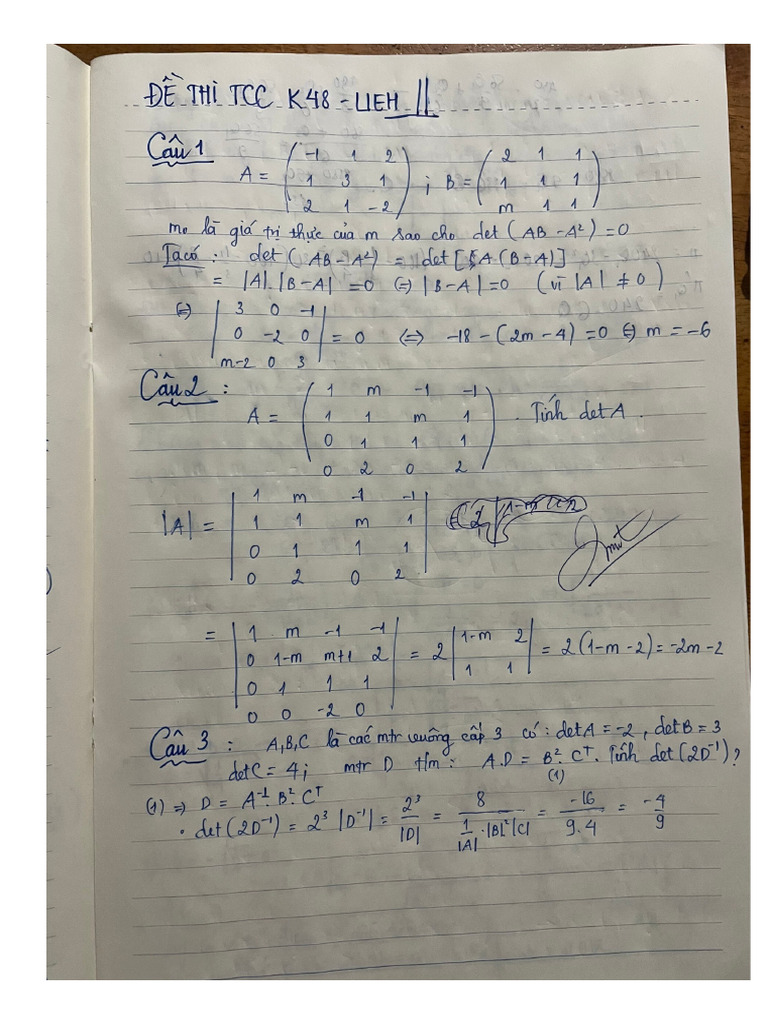 ĐỀ THI TCC K48 - UEH
Câu 1
A = ( -1 1 2 ; 1 3 1 ; 2 1 -2 ) ; B = ( 2 1 1 ; 1 1 1 ; m 1 1 )
mo là giá trị thực của m sao cho det (AB - A²) = 0
Ta có : det ( AB - A² ) = det [ A (B - A)]
= |A|. |B - A| = 0 (=) |B - A| = 0 (vì |A| ≠ 0 )
(=) | 3 0 -1 ; 0 -2 0 ; m-2 0 3 | = 0 (=) -18 - (2m - 4) = 0 (=) m = -6
Câu 2 :
A = ( 1 m -1 -1 ; 1 1 m 1 ; 0 1 1 1 ; 0 2 0 2 ) . Tính det A .
|A| = | 1 m -1 -1 ; 1 1 m 1 ; 0 1 1 1 ; 0 2 0 2 |
= | 1 m -1 -1 ; 0 1-m m+1 2 ; 0 1 1 1 ; 0 0 -2 0 | = 2 | 1-m 2 ; 1 1 | = 2 (1-m-2) = -2m-2
Câu 3 : A,B,C là các mtr vuông cấp 3 có : detA = -2 , detB = 3
detC = 4 ; mtr D t/m : A.D = B². Cᵀ . Tính det (2D⁻¹) ?
(1)
(1) => D = A⁻¹. B². Cᵀ
• det (2D⁻¹) = 2³ |D⁻¹| = 2³/|D| = 8/(1/|A| . |B|² |C|) = -16/9.4 = -4/9